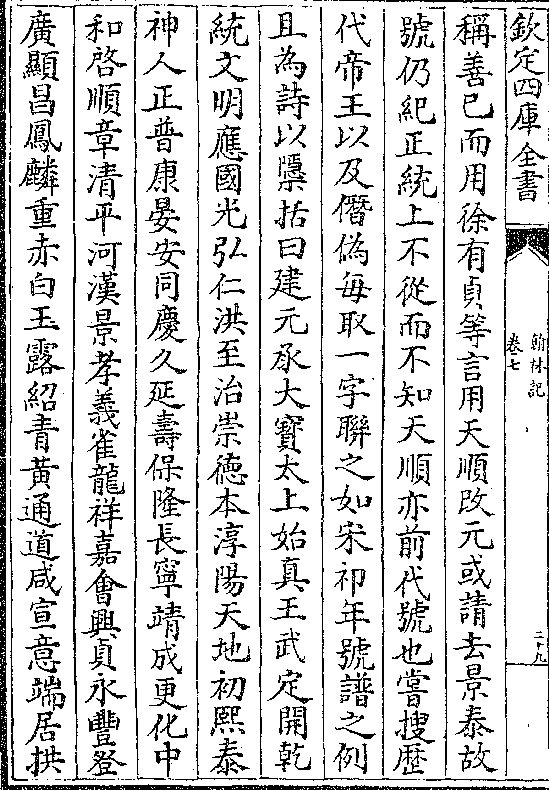 欽定四庫全書
翰林記
卷七
二十九
稱善已而用徐有貞等言用天順改元或請去景泰故
號仍紀正統上不從而不知天順亦前代號也嘗搜歷
代帝王以及僭偽每取一字聯之如宋祁年號譜之例
且為詩以隱括曰建元承大寶太上始真王武定開乾
統文明應國光弘仁洪至治崇德本淳陽天地初熙泰
神人正普康晏安同慶久延壽保隆長寧靖成更化中
和啓順章清平河漢景孝義雀龍祥嘉會興貞永豐登
廣顯昌鳳麟重赤白玉露紹青黃通道咸宣意端居拱